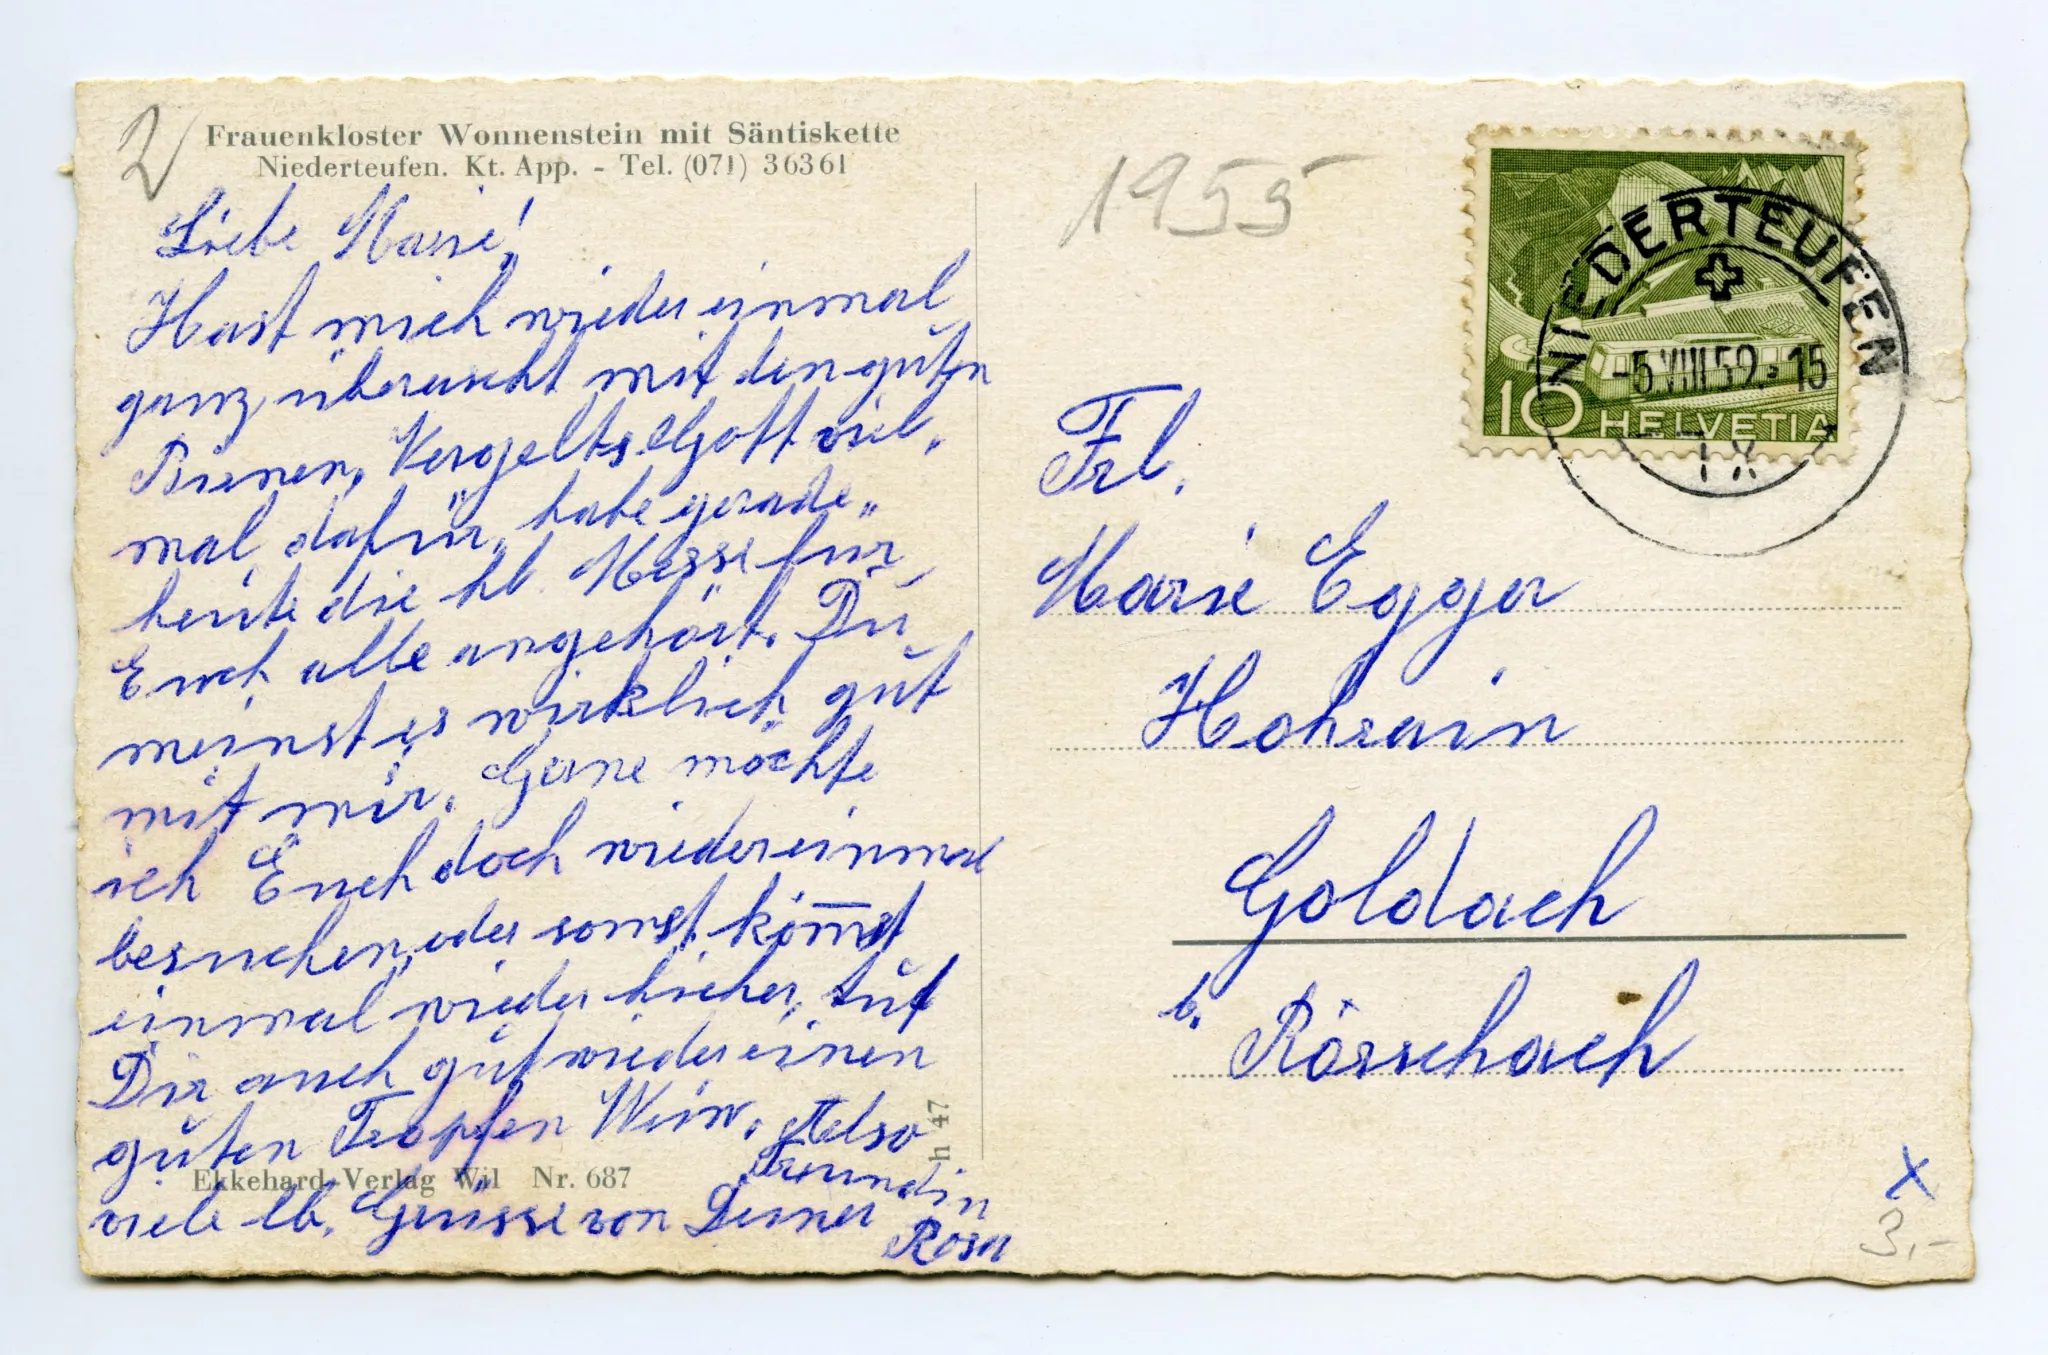 2
Frauenkloster Wonnenstein mit Säntiskette
Niederteufen. Kt. App. - Tel. (071) 36361
Liebe Marie!
Hast mich wieder einmal
ganz überrascht mit den guten
Birnen, Vergelts Gott viel„
mal dafür, habe gerade„
heute die hl. Messe für
Euch alle angehört. Du
meinst es wirklich gut
mit mir. Gerne möchte
ich Euch doch wiedereinmal
besuchen, oder sonst kom̅st
einmal wieder hieher, tut
Dir auch gut wieder einen
guten Tropfen Wein. Also
viele lb. Grüsse von Deiner
Freundin
Rosa
Ekkehard-Verlag Wil Nr. 687
h 47
1955
NIEDERTEUFEN
-5.VIII.59.-15
10 HELVETIA
Frl.
Marie Egger
Hohrain
Goldach
b. Rorschach
x
3,-